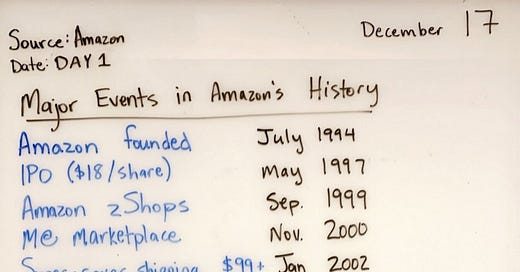 December 17
Source: Amazon
Date: DAY 1
Major Events in Amazon's History
Amazon founded July 1994
IPO ($18/share) May 1997
Amazon zShops Sep. 1999
M@ Marketplace Nov. 2000
Super saver shipping $99+ Jan 2002